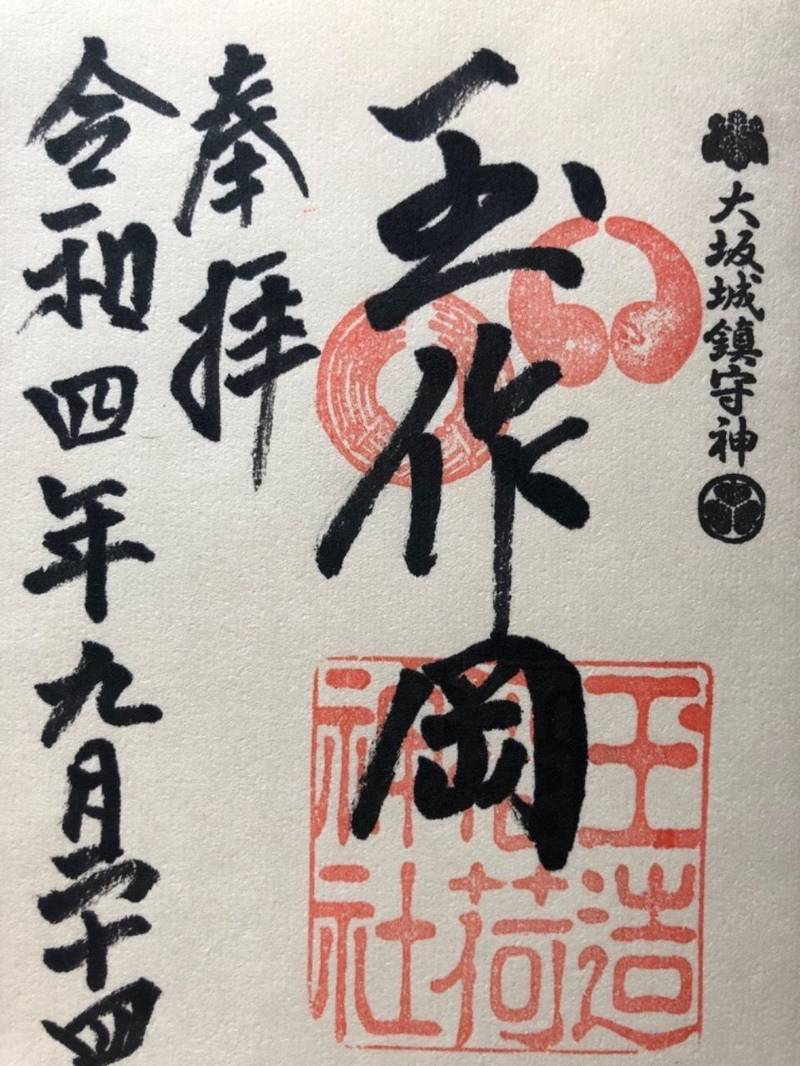 大坂城鎮守神
玉作岡
玉造
稲荷
神社
奉拝
令和四年九月二十四